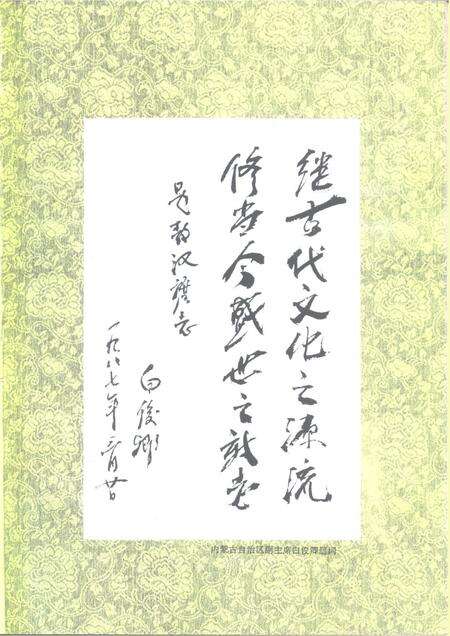 继古代文化之源流
修当今盛世之新
题敖汉旗志
白俊卿
一九八七年三月廿
内蒙古自治区副主席白俊卿题词